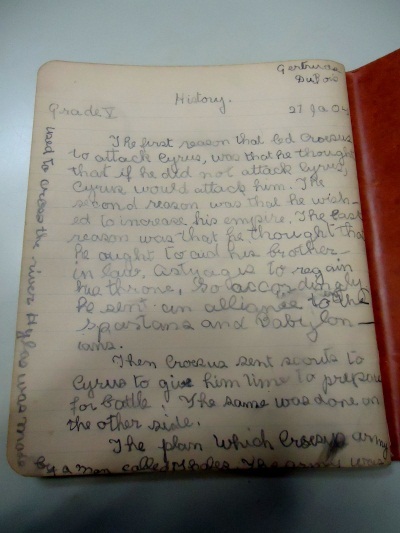 Gertrude
DuBois
History.
Grade V
27 Ja 04
The first reason that led Croesus
to attack Cyrus, was that he thought
that if he did not attack Cyrus,
Cyrus would attack him. The
second reason was that he wish-
ed to increase his empire. The last
reason was that he thought that
he ought to aid his brother-
in law, Astyagis to regain
his throne, So accordingly
he sent an alliance to the
Spartans and Babylon-
ians.
Then Croesus sent scouts to
Cyrus to give him time to prepare
for battle; The same was done on
the other side.
The plan which Croesus army
by a man called Thales. The army was
used to cross the river Hylas was made